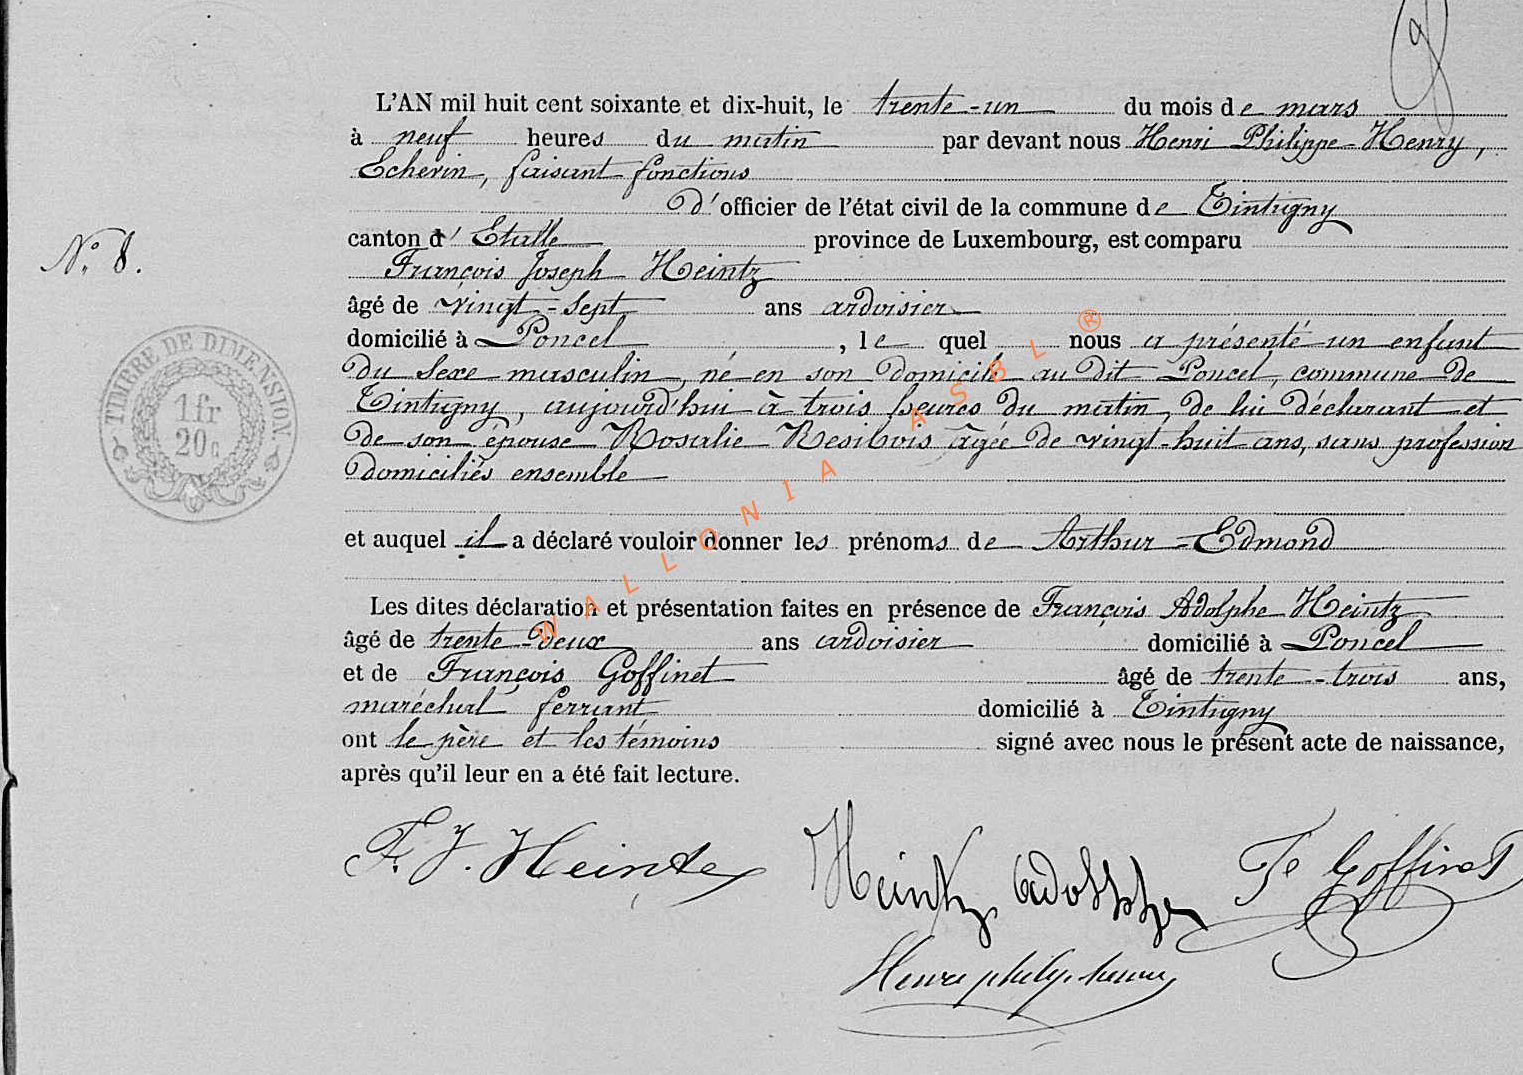 L'AN mil huit cent soixante et dix-huit, le trente-un du mois de mars
à neuf heures du matin par devant nous Henri Philippe Henry,
Echevin, faisant fonctions
d'officier de l'état civil de la commune de Tintigny
canton d'Etalle province de Luxembourg, est comparu
N° 8.
François Joseph Heintz
âgé de vingt-sept ans ardoisier
domicilié à Poncel, le quel nous a présenté un enfant
du sexe masculin, né en son domicile au dit Poncel, commune de
Tintigny, aujourd'hui à trois heures du matin, de lui déclarant et
de son épouse Rosalie Resibois âgée de vingt-huit ans, sans profession
domiciliés ensemble
TIMBRE DE DIMENSION.
1 fr
20 c
et auquel il a déclaré vouloir donner les prénoms de Arthur-Edmond
Les dites déclaration et présentation faites en présence de François Adolphe Heintz
âgé de trente-deux ans ardoisier domicilié à Poncel
et de François Goffinet âgé de trente-trois ans,
maréchal ferrant domicilié à Tintigny
ont le père et les témoins signé avec nous le présent acte de naissance,
après qu'il leur en a été fait lecture.
WALLONIA ASBL ®
F. J. Heintz Heintz Adolphe Fs Goffinet
Henri philip. henry